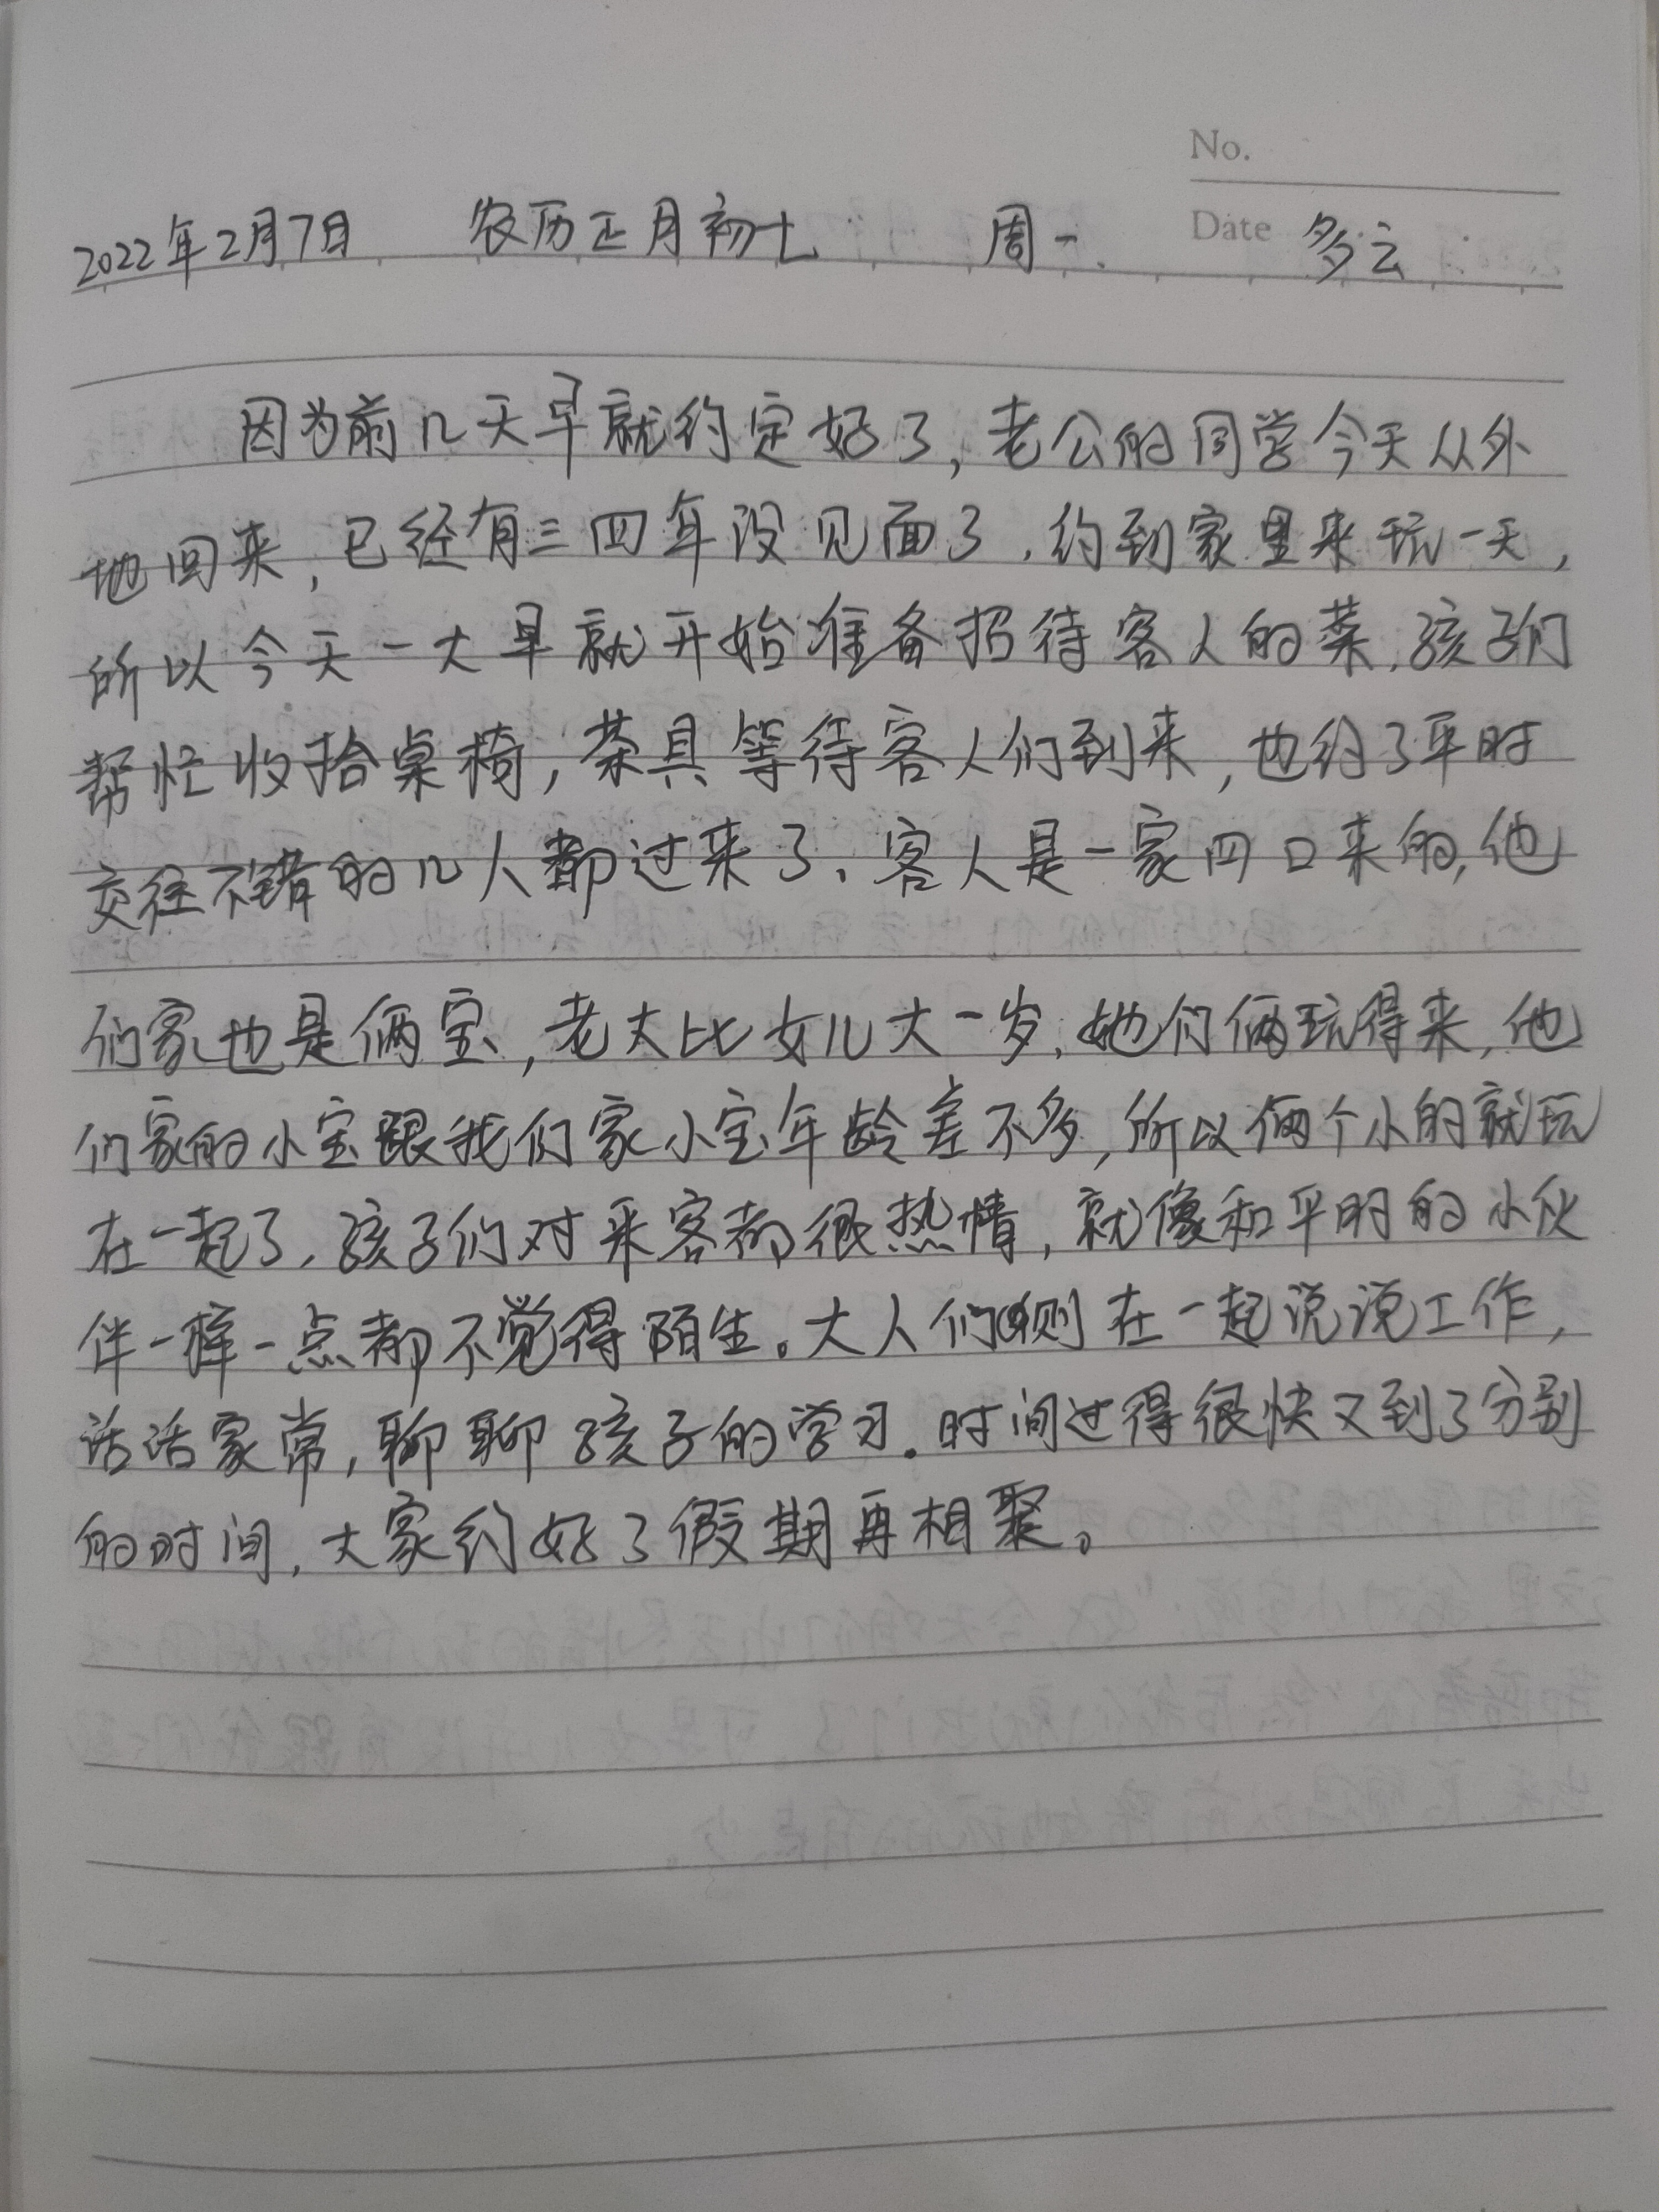 No.
Date
2022年2月7日 农历正月初七 周一. 多云
因为前几天早就约定好了,老公的同学今天从外
地回来,已经有三四年没见面了,约到家里来玩一天,
所以今天一大早就开始准备招待客人的菜,孩子们
帮忙收拾桌椅,茶具等待客人们到来,也约了平时
交往不错的几人都过来了、客人是一家四口来的,他
们家也是俩宝,老大比女儿大一岁,她们俩玩得来,他
们家的小宝跟我们家小宝年龄差不多,所以俩个小的就玩
在一起了,孩子们对来客都很热情,就像和平时的小伙
伴一样一点都不觉得陌生。大人们则在一起说说工作,
话话家常,聊聊孩子的学习.时间过得很快又到了分别
的时间,大家约好了假期再相聚。